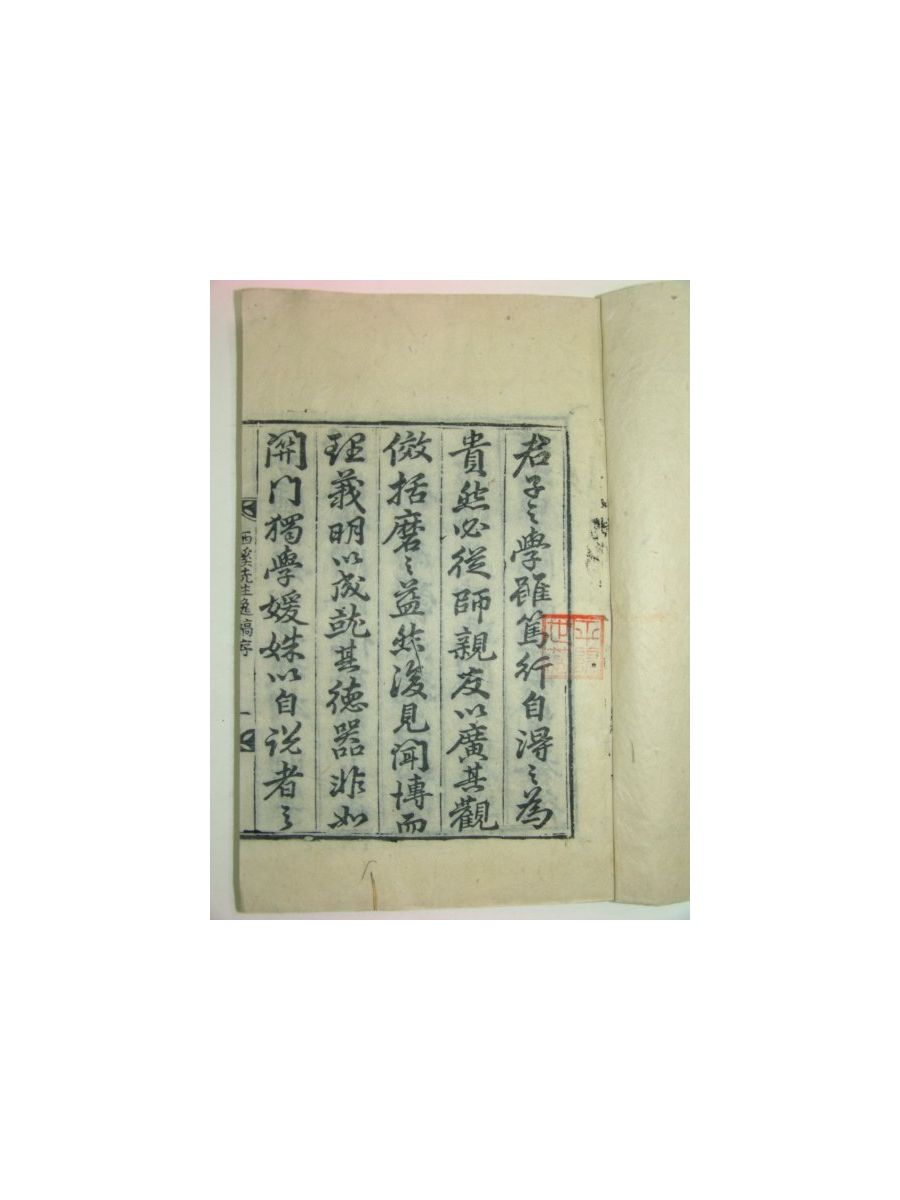 君子之學雖篤行自得之爲
貴然必從師親友以廣其觀
倣括磨之益然後見聞博而
理義明以成就其德器非如
閉門獨學媛姝以自説者之
西溪先生逸稿序
一